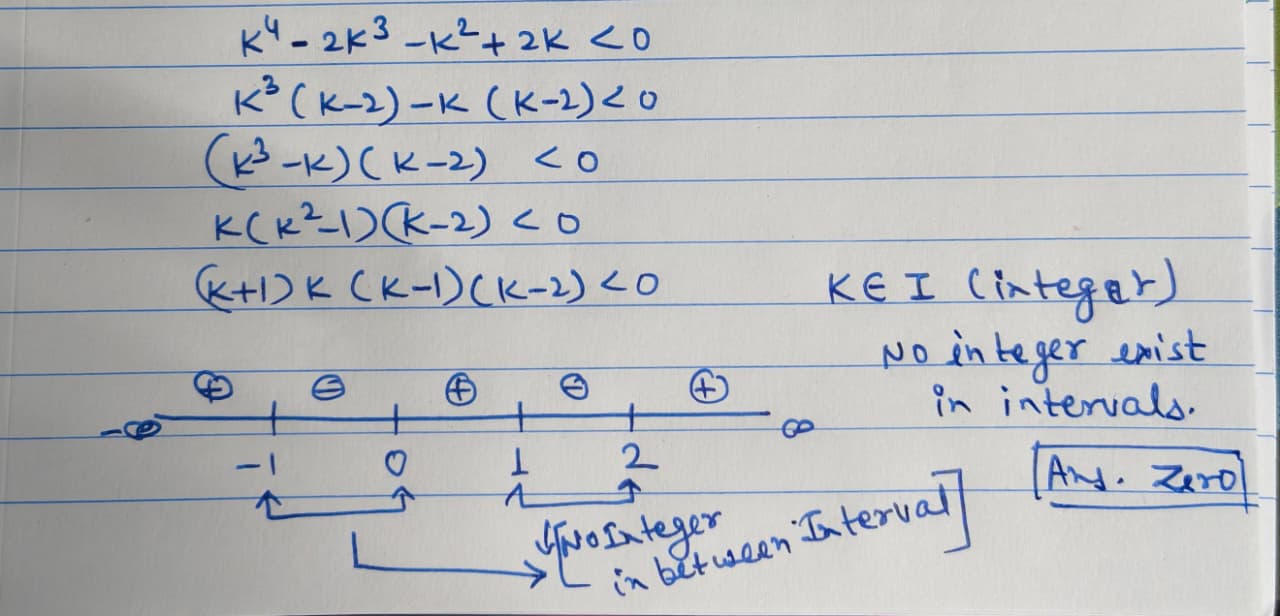 K⁴ - 2K³ - K² + 2K < 0
K³ (K-2) - K (K-2) < 0
(K³ - K) (K-2) < 0
K (K² - 1) (K-2) < 0
(K+1) K (K-1) (K-2) < 0
K ∈ I (integer)
No integer exist
in intervals.
⊕ ⊖ ⊕ ⊖ ⊕
-∞ ∞
-1 0 1 2
Ans. Zero
[No Integer
in between Interval]